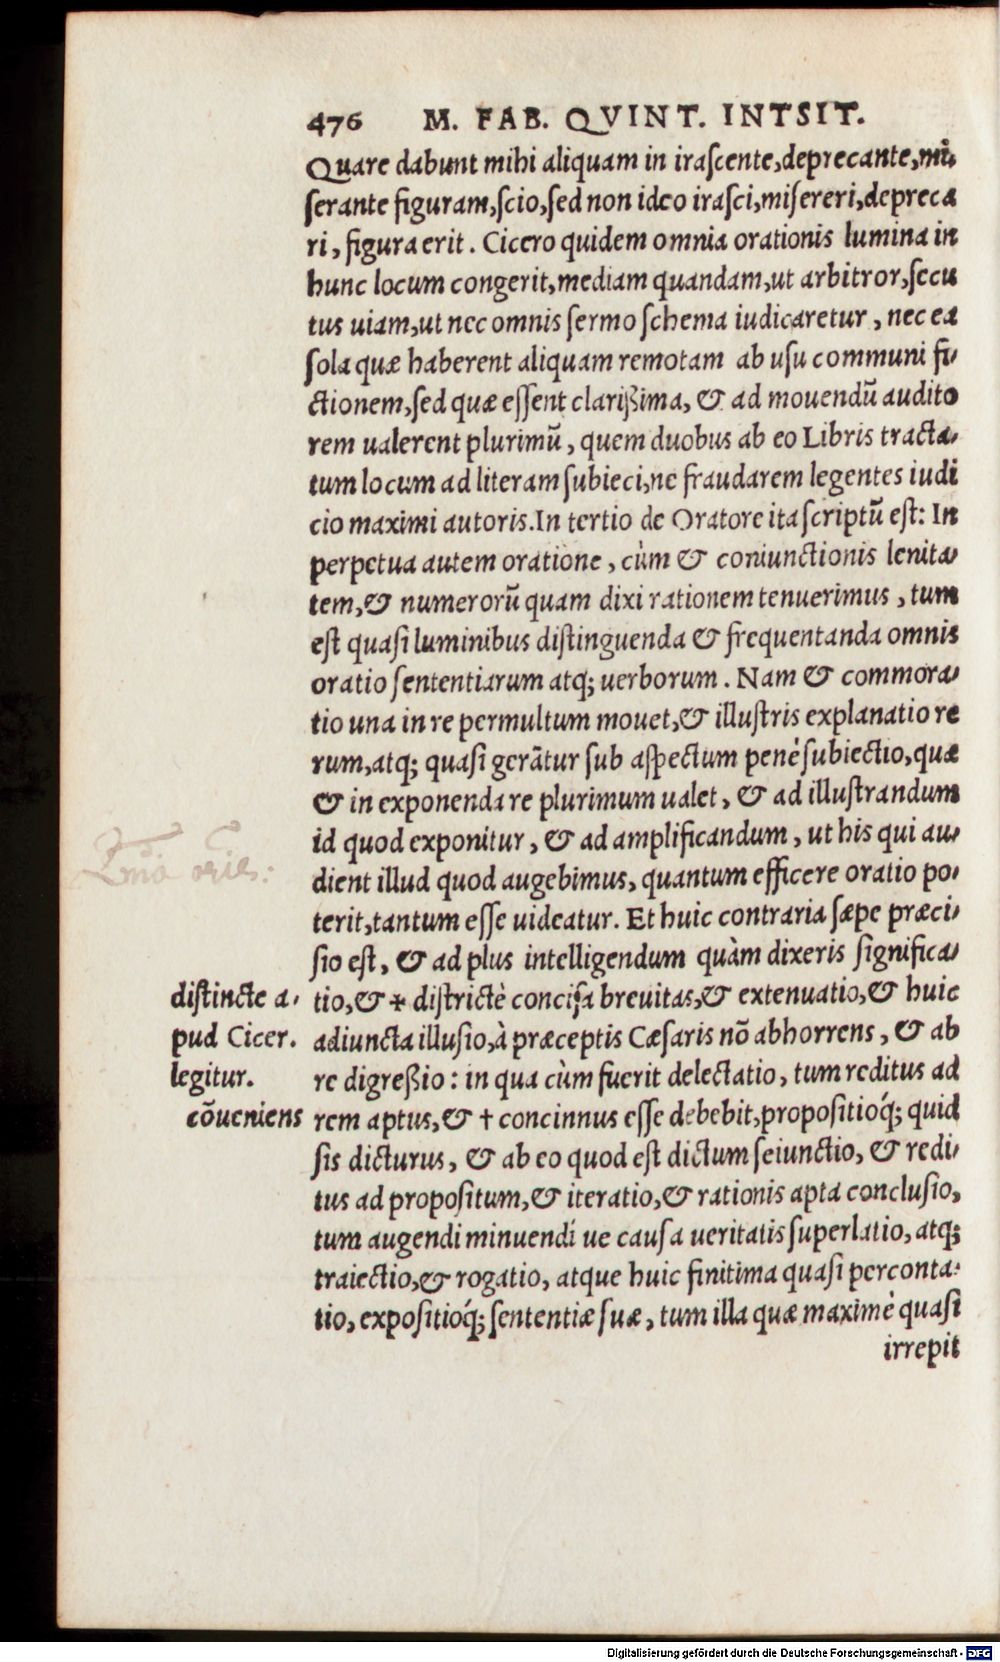 476 M. FAB. QVINT. INTSIT.
Quare dabunt mihi aliquam in iraſcente, deprecante, mi-
ſerante figuram, ſcio, ſed non ideo iraſci, miſereri, depreca
ri, figura erit. Cicero quidem omnia orationis lumina in
hunc locum congerit, mediam quandam, ut arbitror, ſecu
tus uiam, ut nec omnis ſermo ſchema iudicaretur, nec ea
ſola quæ haberent aliquam remotam ab uſu communi fi-
ctionem, ſed quæ eſſent clarißima, & ad mouendũ audito
rem ualerent plurimũ, quem duobus ab eo Libris tracta-
tum locum ad literam ſubieci, ne fraudarem legentes iudi
cio maximi autoris. In tertio de Oratore ita ſcriptũ eſt: In
perpetua autem oratione, cùm & coniunctionis lenita-
tem, & numerorũ quam dixi rationem tenuerimus, tum
eſt quaſi luminibus diſtinguenda & frequentanda omnis
oratio ſententiarum atq; uerborum. Nam & commora-
tio una in re permultum mouet, & illuſtris explanatio re
rum, atq; quaſi gerãtur ſub aſpectum penè ſubiectio, quæ
& in exponenda re plurimum ualet, & ad illuſtrandum
id quod exponitur, & ad amplificandum, ut his qui au-
dient illud quod augebimus, quantum efficere oratio po-
terit, tantum eſſe uideatur. Et huic contraria ſæpe præci-
ſio eſt, & ad plus intelligendum quàm dixeris ſignifica-
diſtincte a- tio, & * diſtrictè conciſa breuitas, & extenuatio, & huic
pud Cicer. adiuncta illuſio, à præceptis Cæſaris nõ abhorrens, & ab
legitur. re digreßio: in qua cùm fuerit delectatio, tum reditus ad
cõueniens rem aptus, & † concinnus eſſe debebit, propoſitióq́; quid
ſis dicturus, & ab eo quod eſt dictum ſeiunctio, & redi-
tus ad propoſitum, & iteratio, & rationis apta concluſio,
tum augendi minuendi ue cauſa ueritatis ſuperlatio, atq;
traiectio, & rogatio, atque huic finitima quaſi perconta-
tio, expoſitióq́; ſententiæ ſuæ, tum illa quæ maximè quaſi
irrepit
Digitalisierung gefördert durch die Deutsche Forschungsgemeinschaft - DFG